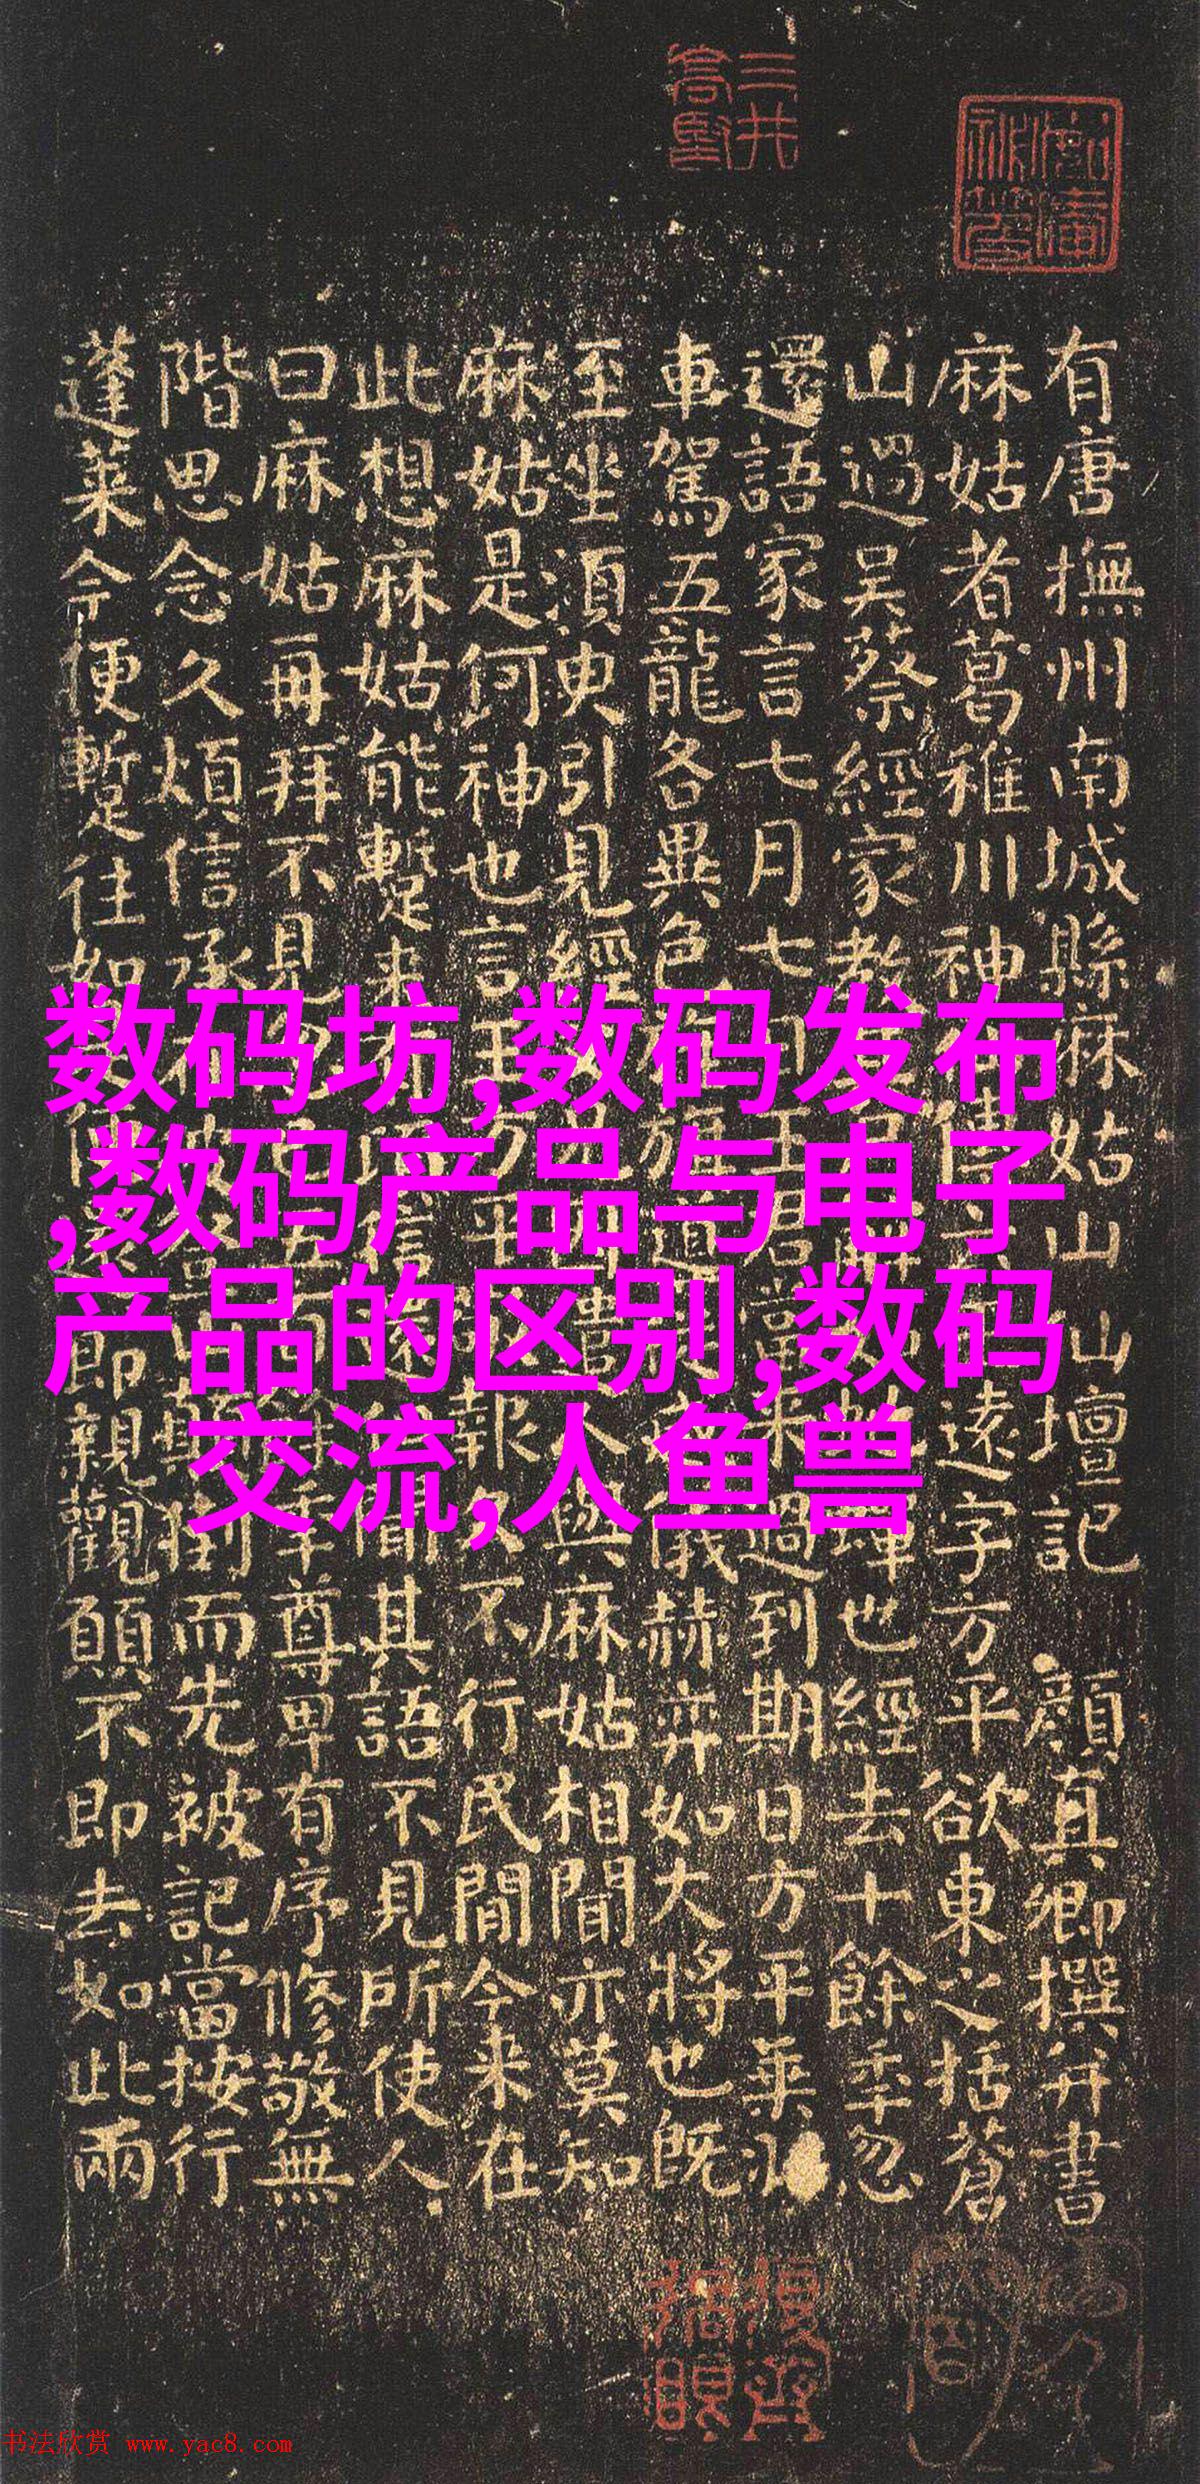 有唐撫州南城縣麻姑山山壇記 顏真卿撰并書
麻姑者葛稚川神傳遠字方平欲東之括蒼
山過吳蔡經家教蟬也經去十餘年忽
還語家言七月七日王君當来過到期日方平乗
車駕五龍各異色旌旗導儀赫弈如大將也既
至坐須臾引見經與麻姑相聞亦莫知
麻姑是何神也言王方平報久不行民間今来在
此想麻姑能蹔来信還聞其語不見所使人
曰麻姑再拜不見五年尊卑有序修敬無
階思念久煩信承被顛倒而先被記當按行
蓬莱今便蹔往如即親觀願不即去如此兩
三井高堅
数码坊,数码发布
,数码产品与电子
产品的区别,数码
交流,人鱼兽
书法欣赏 www.yac8.com